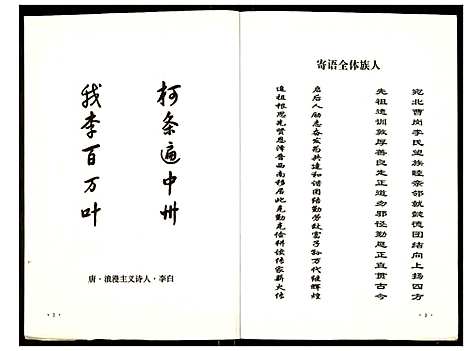 我李百万叶
柯条遍中州
唐·浪漫主义诗人·李白
寄语全体族人
追祖根思先贤恩泽晋西南移居此克勤克俭耕读传家薪火传
启后人励志奋发苑共建和谐团结勤劳致富子孙万代继辉煌
先祖遗训敦厚善良走正道勿邪径勤思正直贯古今
宛北曹岗李氏望族睦亲邻就懿德团结向上扬四方